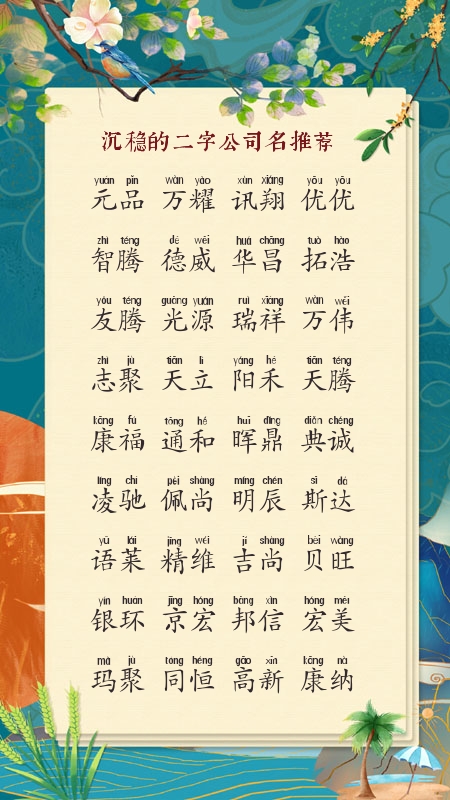 沉稳的二字公司名推荐
yuán pǐn wàn yào xùn xiáng yōu yōu
元品 万耀 讯翔 优优
zhì téng dé wēi huá chāng tuò hào
智腾 德威 华昌 拓浩
yǒu téng guāng yuán ruì xiáng wàn wěi
友腾 光源 瑞祥 万伟
zhì jù tiān lì yáng hé tiān téng
志聚 天立 阳禾 天腾
kāng fú tōng hé huī dǐng diǎn chéng
康福 通和 晖鼎 典诚
líng chí pèi shàng míng chén sī dá
凌驰 佩尚 明辰 斯达
yǔ lái jīng wéi jí shàng bèi wàng
语莱 精维 吉尚 贝旺
yín huán jīng hóng bāng xìn hóng měi
银环 京宏 邦信 宏美
mǎ jù tóng héng gāo xīn kāng nà
玛聚 同恒 高新 康纳